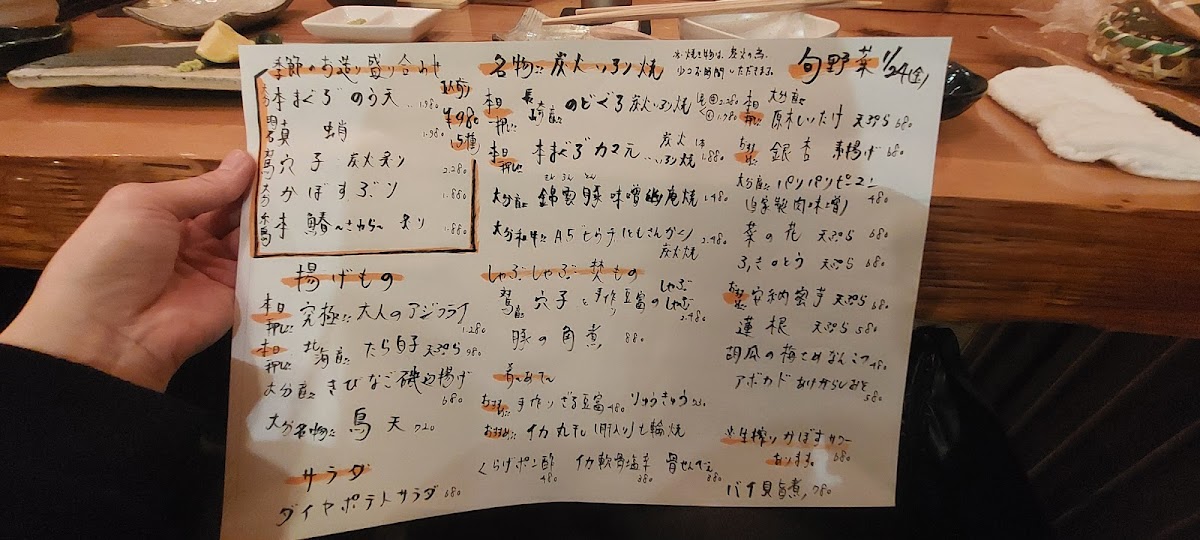 季節のお造り盛り合わせ
大分 本まぐろのう天 1.980
真蛸 1.980
穴子 炭火炙り 2.280
大分 かぼすぶり 1.880
本鰆〜さわら〜炙り 1.880
1人前
¥980
5種
揚げもの
本日一押し!! 究極!! 大人のアジフライ 1.280
本日一押し!! 北海道産 たら白子 天ぷら 980
大分産 きびなご磯辺揚げ 680
大分名物!! 鳥天 720
サラダ
ダイヤポテトサラダ 680
名物!! 炭火いろり焼
※焼き物は、炭火の為、
少々お時間いただきます。
本日一押し!! 長崎産 のどぐろ 炭火いろり焼 2.280 1.980
本日一押し!! 本まぐろカマ元 炭火いろり焼 1.880
大分産 錦雲豚 味噌幽庵焼 1.480
大分和牛!! A5ともさんかく 炭火焼 2.480
しゃぶしゃぶ 焚もの
穴子と手作り豆富のしゃぶしゃぶ 2.480
豚の角煮 880
手作りざる豆富 480 りゅうきゅう
おすすめ!! イカ丸干し(肝入り)七輪焼
くらげポン酢 480 イカ軟骨塩辛 380 骨せんべえ 380
旬野菜 1/24(金)
本日一押し!! 大分産 原木しいたけ 天ぷら 680
おすすめ!! 銀杏 素揚げ 680
大分産!! パリパリピーマン
(自家製肉味噌) 480
菜の花 天ぷら 680
ふきのとう 天ぷら 680
おすすめ!! 安納蜜芋 天ぷら 680
蓮根 天ぷら 580
胡瓜の梅さめなんこつ 480
アボカド わさびしょうゆ 580
生搾りかぼすサワー
あります。 680
バイ貝旨煮 780